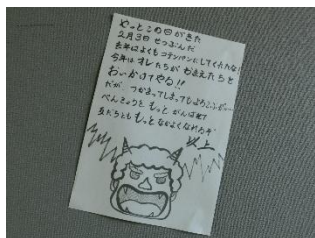 やっとこの日がきた
2月3日 せつぶんだ
去年はよくもコテンパンにしてくれたな!
今年はオレたちがおまえたちを
おいかけてやる!!
だが つかまってしまっても
べんきょうを もっと がんばれて
友だちとも もっと なかよくなれるぞ
以上